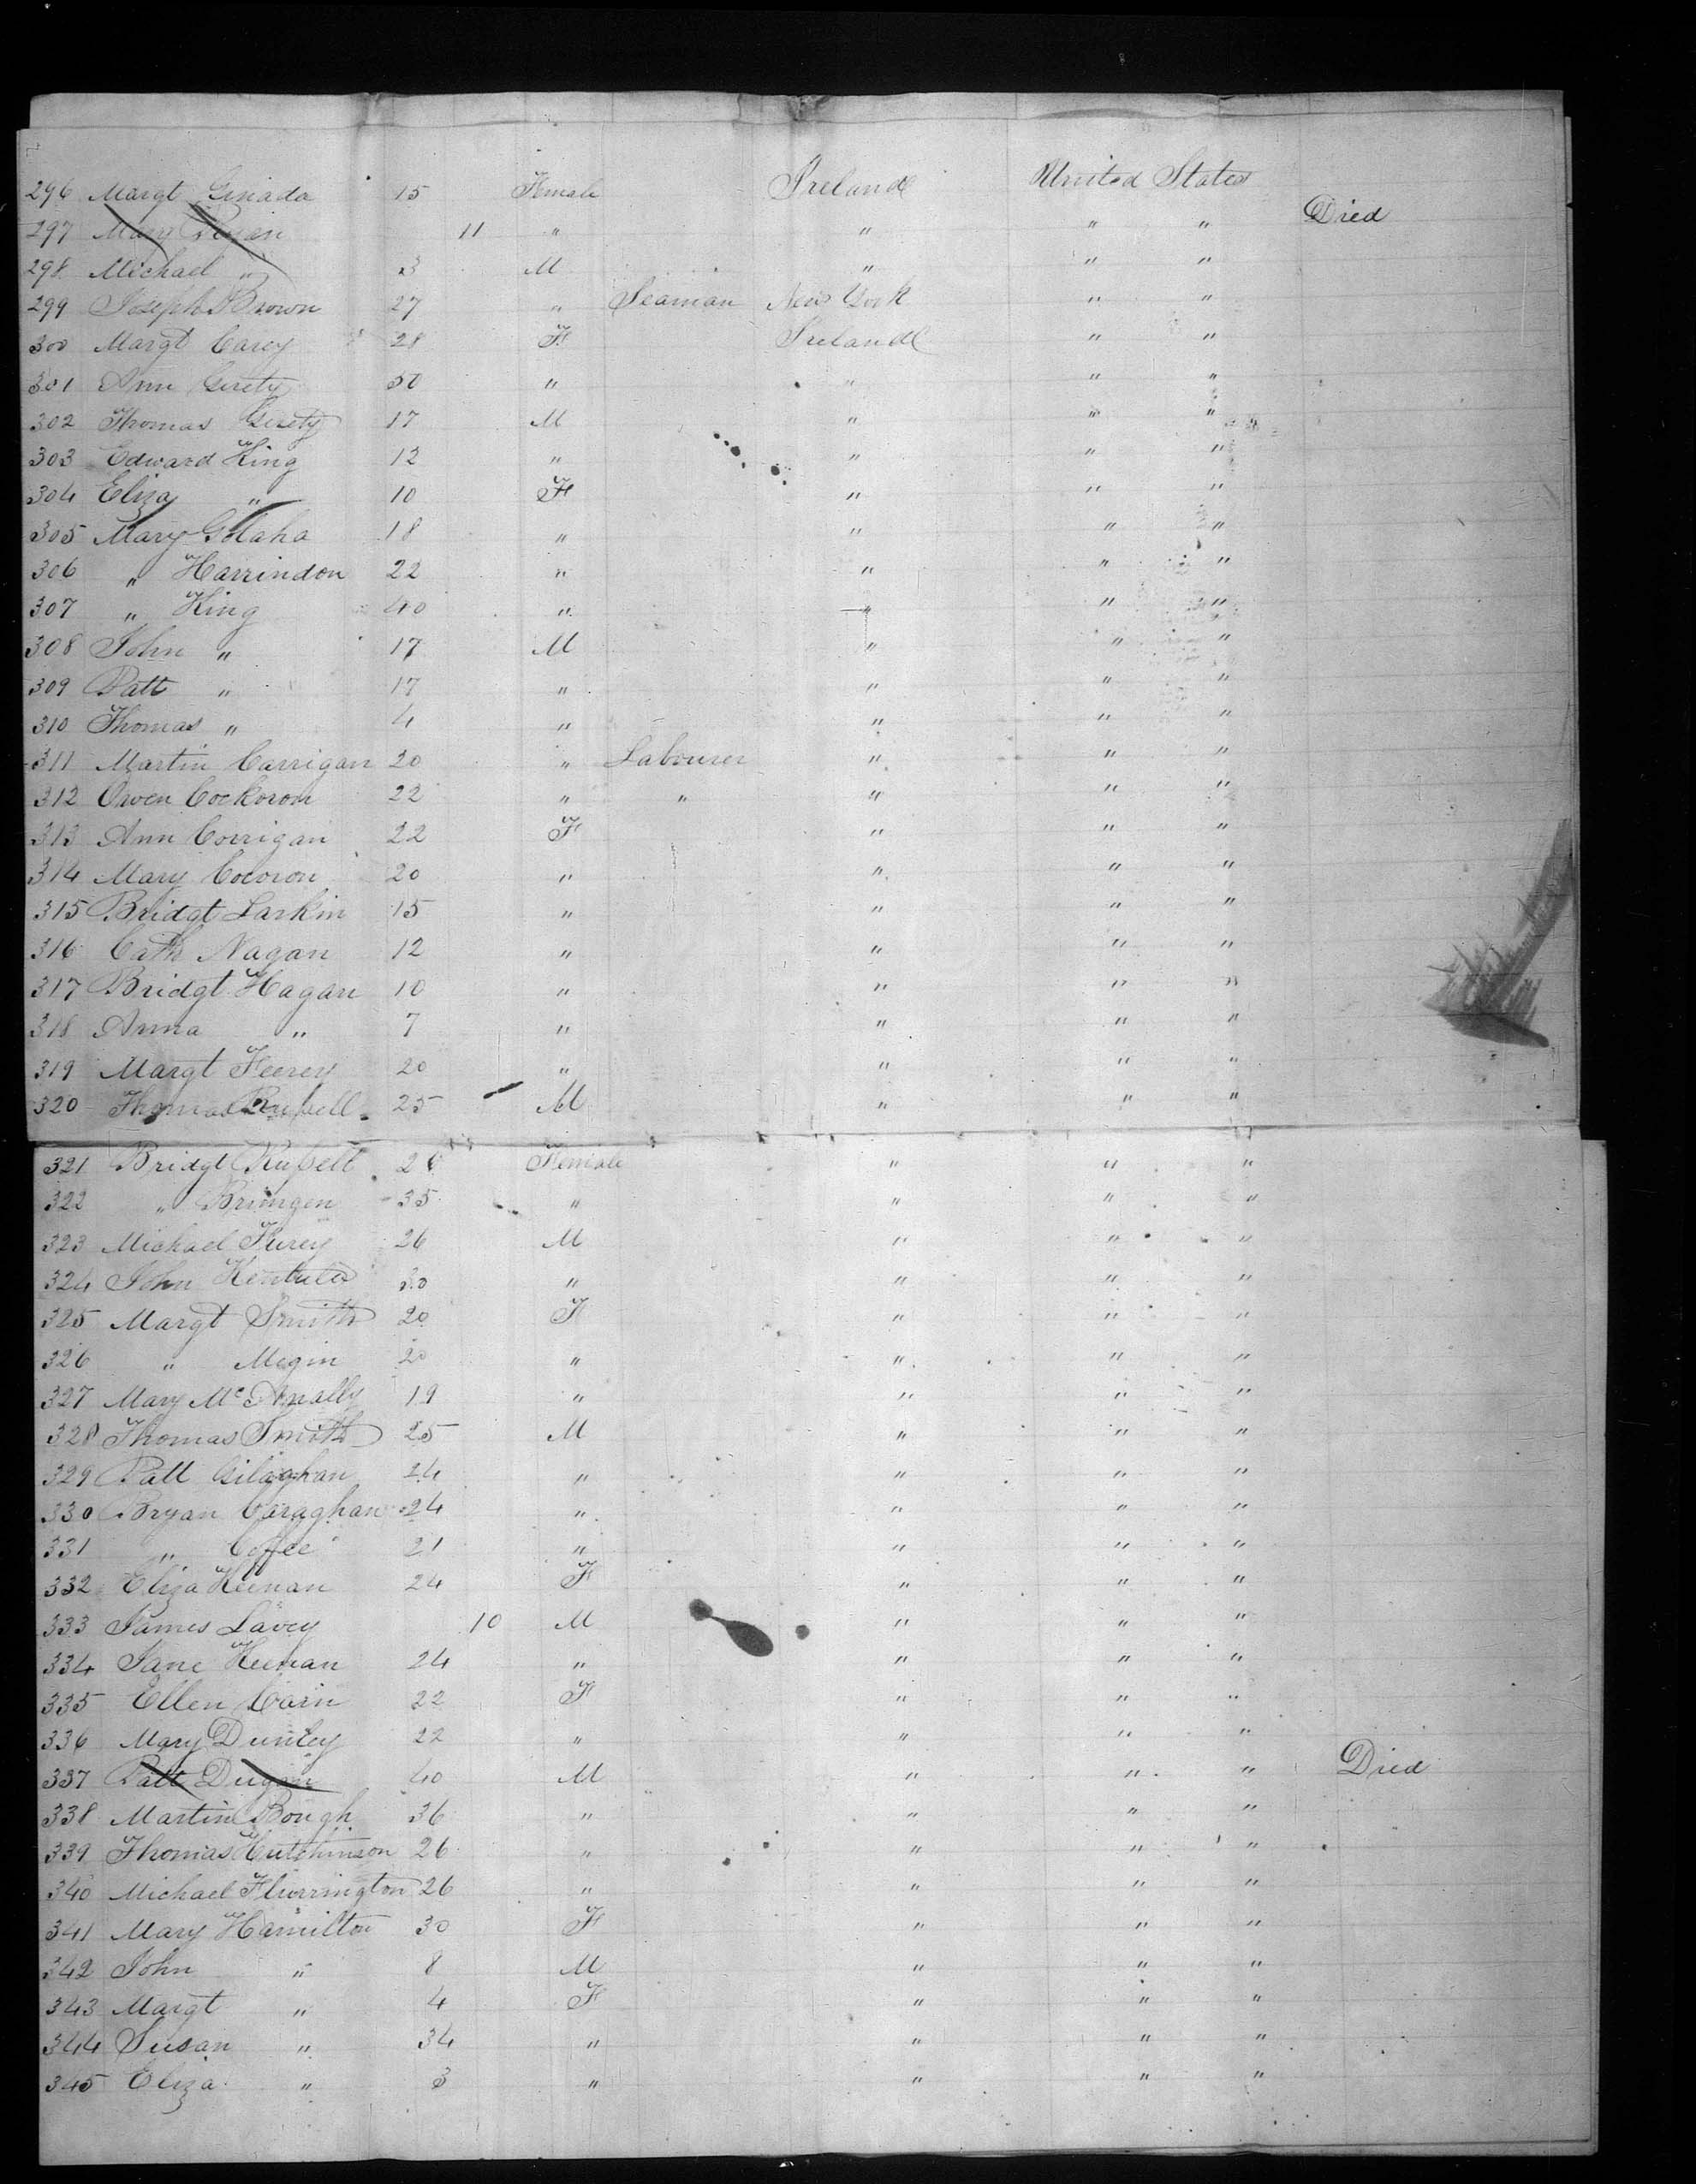 296 Margt Ginada 15 Female Ireland United States
297 Mary Ryan 11 " " " " Died
298 Michael " 3 M " " "
299 Joseph Brown 27 " Seaman New York " "
300 Margt Carey 28 F Ireland " "
301 Ann Gerety 50 " " " "
302 Thomas Gerety 17 M " " "
303 Edward King 12 " " " "
304 Eliza " 10 F " " "
305 Mary Golaha 18 " " " "
306 " Harrindon 22 " " " "
307 " King 40 " " " "
308 John " 17 M " " "
309 Patt " 17 " " " "
310 Thomas " 4 " " " "
311 Martin Carrigan 20 " Labourer " " "
312 Owen Cockoron 22 " " " " "
313 Ann Corrigan 22 F " " "
314 Mary Cocoron 20 " " " "
315 Bridgt Larkin 15 " " " "
316 Cath Nagan 12 " " " "
317 Bridgt Hagan 10 " " " "
318 Anna " 7 " " " "
319 Margt Feerey 20 " " " "
320 Thomas Russell 25 M " " "
321 Bridgt Russell 26 Female " " "
322 " 35 " " " "
323 Michael Furey 26 M " " "
324 John 30 " " " "
325 Margt Smith 20 F " " "
326 " Megin 20 " " " "
327 Mary McAnally 19 " " " "
328 Thomas Smith 25 M " " "
329 Patt Gilaghan 24 " " " "
330 Bryan Caraghan 24 " " " "
331 " Coffee 21 " " " "
332 Eliza Keenan 24 F " " "
333 James Lavey 10 M " " "
334 Jane Keenan 24 " " " "
335 Ellen Carin 22 F " " "
336 Mary Dunley 22 " " " "
337 Patt Dugan 40 M " " " Died
338 Martin Bough 36 " " " "
339 Thomas Hutchinson 26 " " " "
340 Michael Flurrington 26 " " " "
341 Mary Hamilton 30 F " " "
342 John " 8 M " " "
343 Margt " 4 F " " "
344 Susan " 34 " " " "
345 Eliza " 3 " " " "